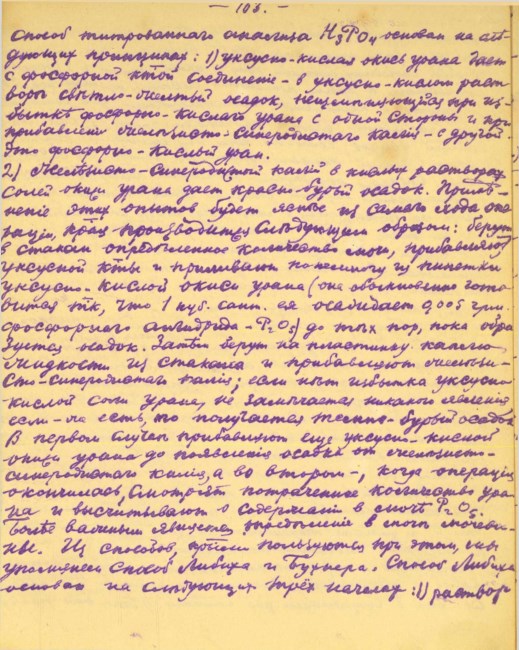 — 103. —
Способ титрованнаго анализа H₃PO₄ основан на слѣ-
дующих принципах: 1) уксусно-кислая окись урана дает
с фосфорной к-той соединение - в уксусно-кислом раст-
воры свѣтло-желтый осадок, неизмѣняющийся при из-
быткѣ фосфорно-кислаго урана с одной стороны и при
прибавлении желѣзисто-синеродистаго калия - с другой.
Это фосфорно-кислый уран.
2) Желѣзисто-синеродистый калий в кислых растворах
солей окиси урана дает красно-бурый осадок. Примѣ-
нение этих опытов будет яснѣе из самаго хода опе-
рации, края производится слѣдующим образом: берут
в стакан опредѣленное количество мочи, прибавляют
уксусной к-ты и приливают понемногу из пипетки
уксусно-кислой окиси урана (она обыкновенно гото-
вится так, что 1 куб. сант. ея осаждает 0,005 грм.
фосфорнаго ангидрида - P₂O₅) до тѣх пор, пока обра-
зуется осадок. Затѣм берут на пластинку каплю
жидкости из стакана и прибавляют желѣзи-
сто-синеродистаго калия; если нѣт избытка уксусно-
кислой соли урана, не замѣчается никакого явления
если-же есть, то получается темно-бурый осадок.
В первом случаѣ прибавляют еще уксусно-кислой
окиси урана до появления осадка от желѣзисто-
синеродистаго калия, а во втором -, когда операция
окончилась, смотрят потраченное количество ура-
на и высчитывают о содержании в мочѣ P₂O₅.
Болѣе важным является опредѣление в мочѣ мочеви-
ны. Из способов, крыми пользуются при этом, мы
упомянем способ Либиха и Бунзера. Способ Либиха
основан на слѣдующих трёх началах: 1) раствор